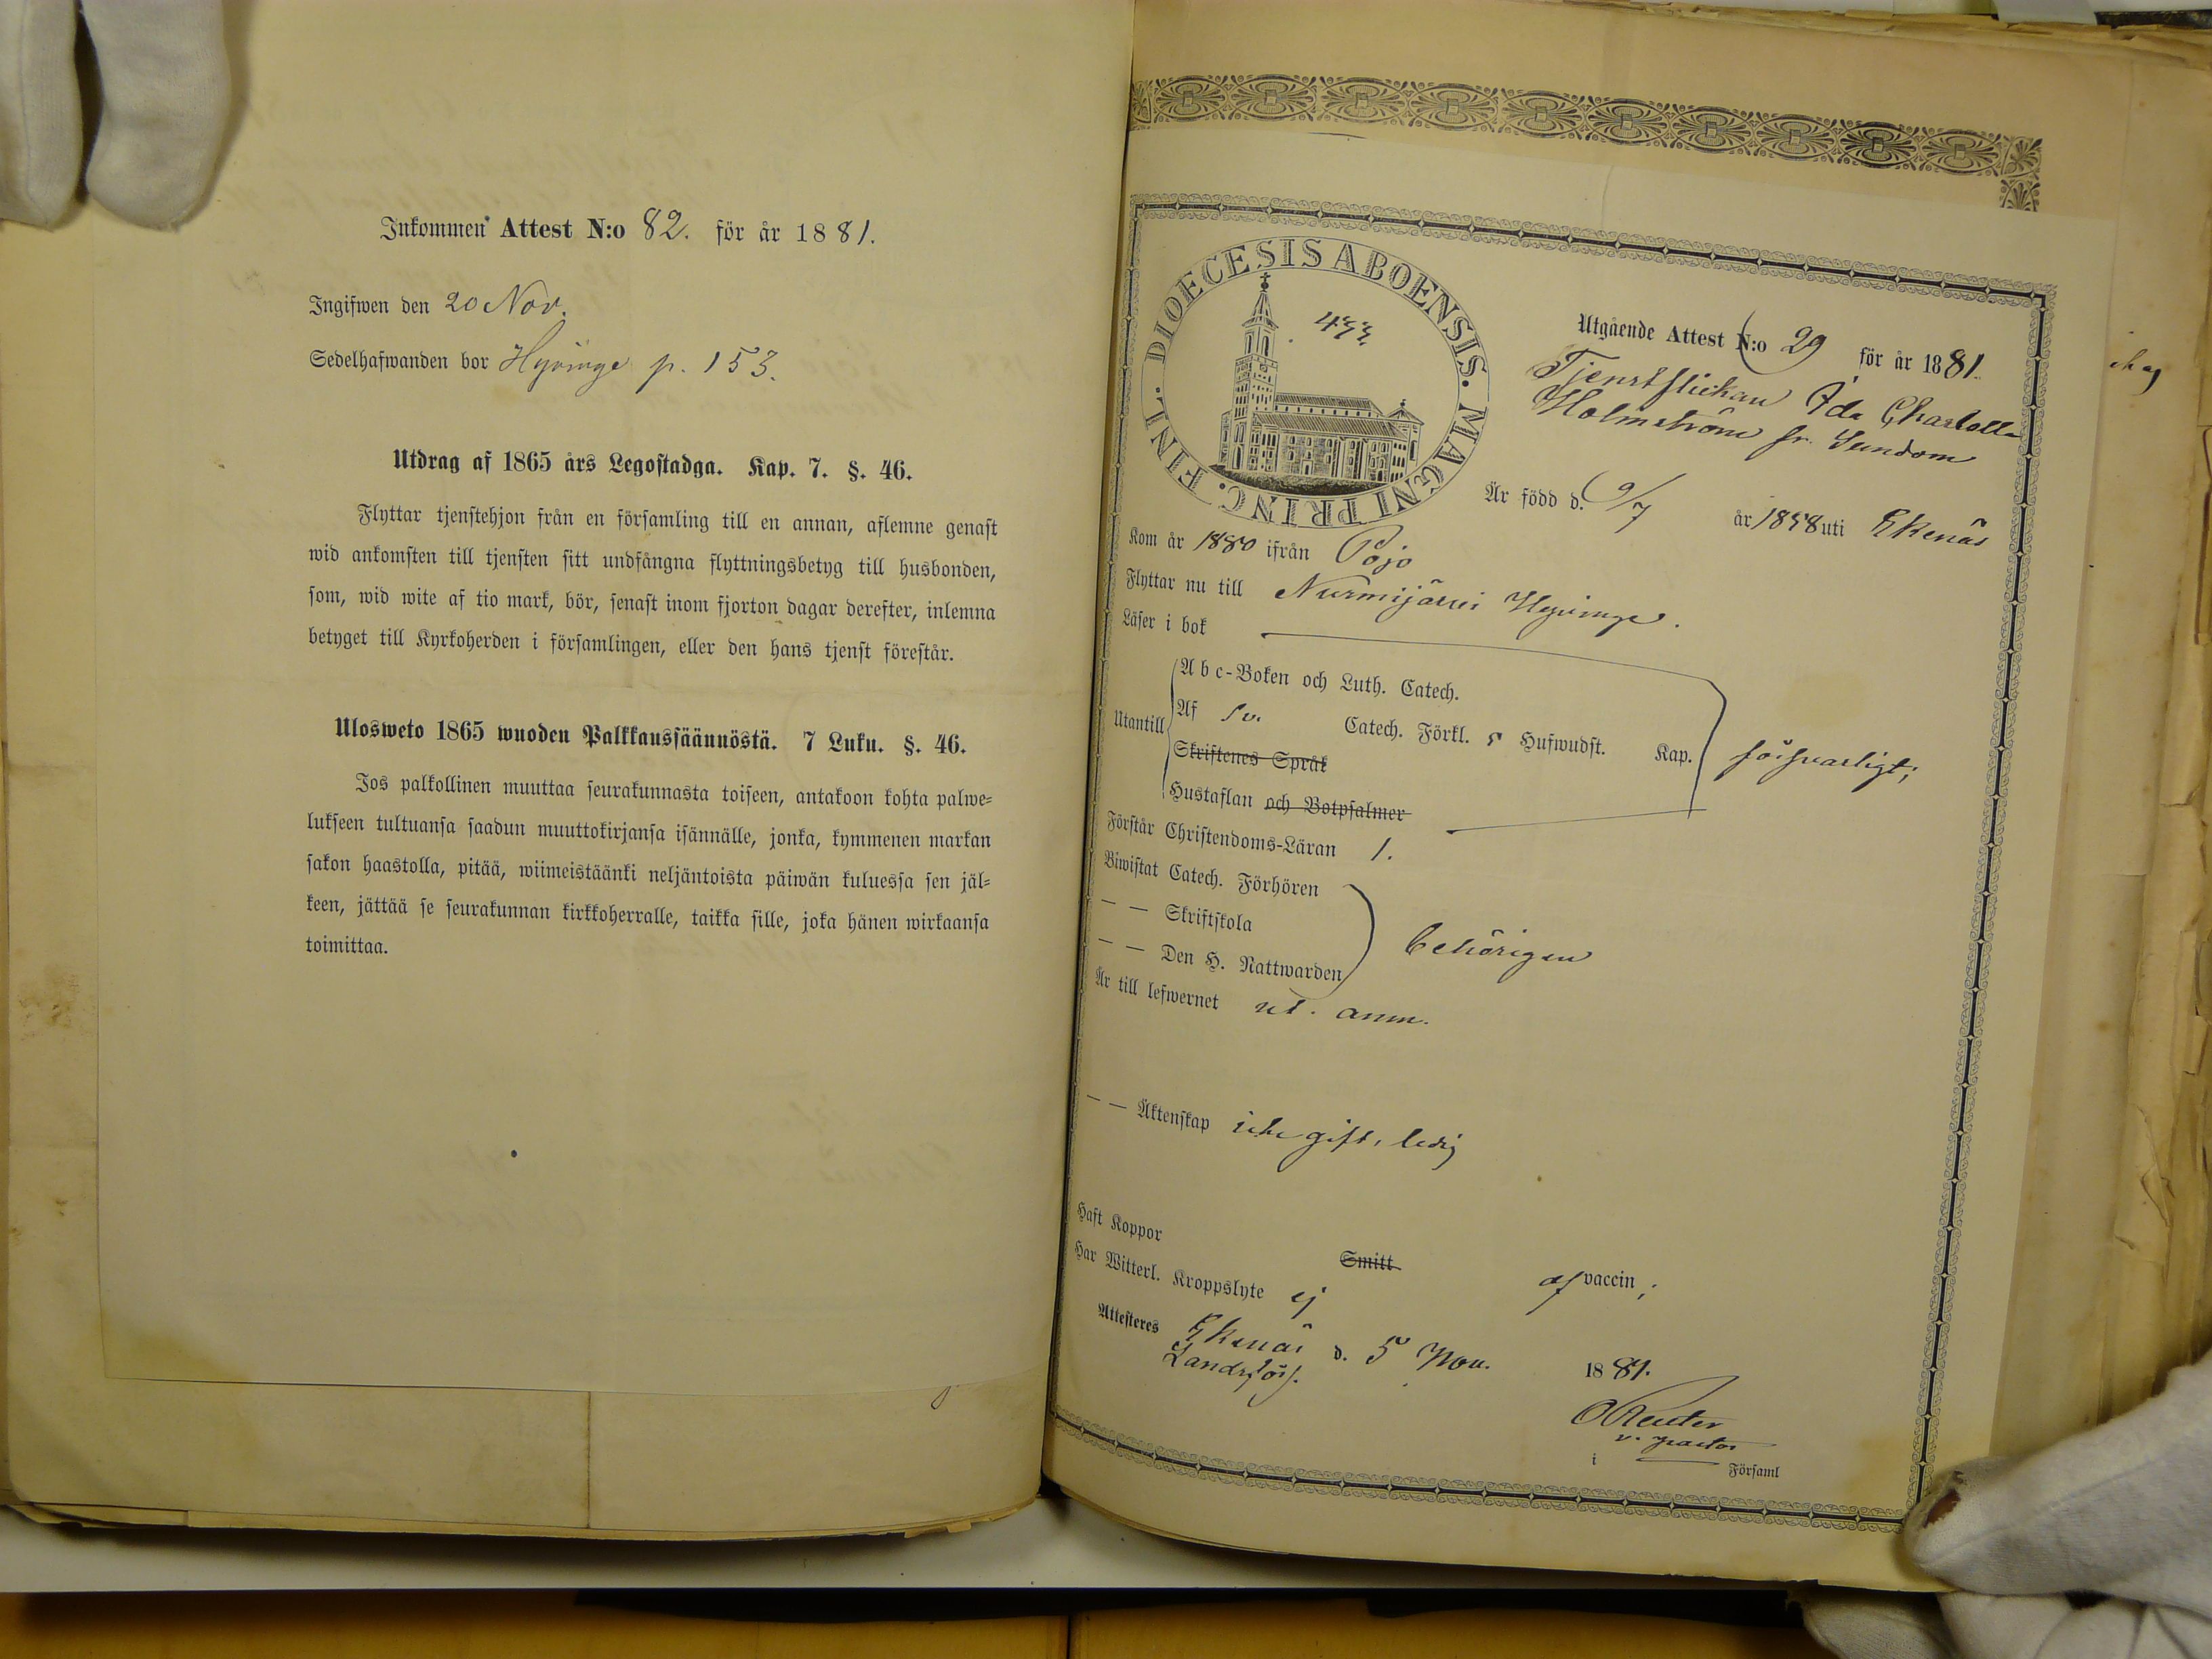 Inkommen Attest N:o 82. för år 1881.
Ingifwen den 20 Nov.
Sedelhafwanden bor Hyvinge p. 153.
Utdrag af 1865 års Legostadga. Kap. 7. §. 46.
Flyttar tjenstehjon från en församling till en annan, aflemne genast
wid ankomsten till tjensten sitt undfångna flyttningsbetyg till husbonden,
som, wid wite af tio mark, bör, senast inom fjorton dagar derefter, inlemna
betyget till Kyrkoherden i församlingen, eller den hans tjenst förestår.
Ulosweto 1865 wuoden Palkkaussäännöstä. 7 Luku. §. 46.
Jos palkollinen muuttaa seurakunnasta toiseen, antakoon kohta palwe=
lukseen tultuansa saadun muuttokirjansa isännälle, jonka, kymmenen markan
sakon haastolla, pitää, wiimeistäänki neljäntoista päiwän kuluessa sen jäl=
keen, jättää se seurakunnan kirkkoherralle, taikka sille, joka hänen wirkaansa
toimittaa.
DIOECESIS ABOENSIS. MAGNI PRINC. FINL.
Utgående Attest N:o 29 för år 1881.
Tjenstflickan Ida Charlotta
Holmström fr. Sundom
Är född d. 9/7 år 1858 uti Ekenäs
Kom år 1880 ifrån Pojo
Flyttar nu till Nurmijärvi Hyvinge.
Läser i bok
Abc-Boken och Luth. Catech.
Utantill Af Sv. Catech. Förkl. 5 Hufwudst. Kap. försvarligt;
Skriftenes Språk
Hustaflan och Botpsalmer
Förstår Christendoms-Läran 1.
Biwistat Catech. Förhören
— — Skriftskola behörigen
— — Den H. Nattwarden
Är till lefwernet ut. anm.
— — Äktenskap icke gift, ledig
Haft Koppor Smitt af vaccin;
Har Witterl. Kroppslyte ej
Attesteras Ekenäs d. 5 Nov. 1881.
Landsförs.
O Reuter
v. pastor
i Församl